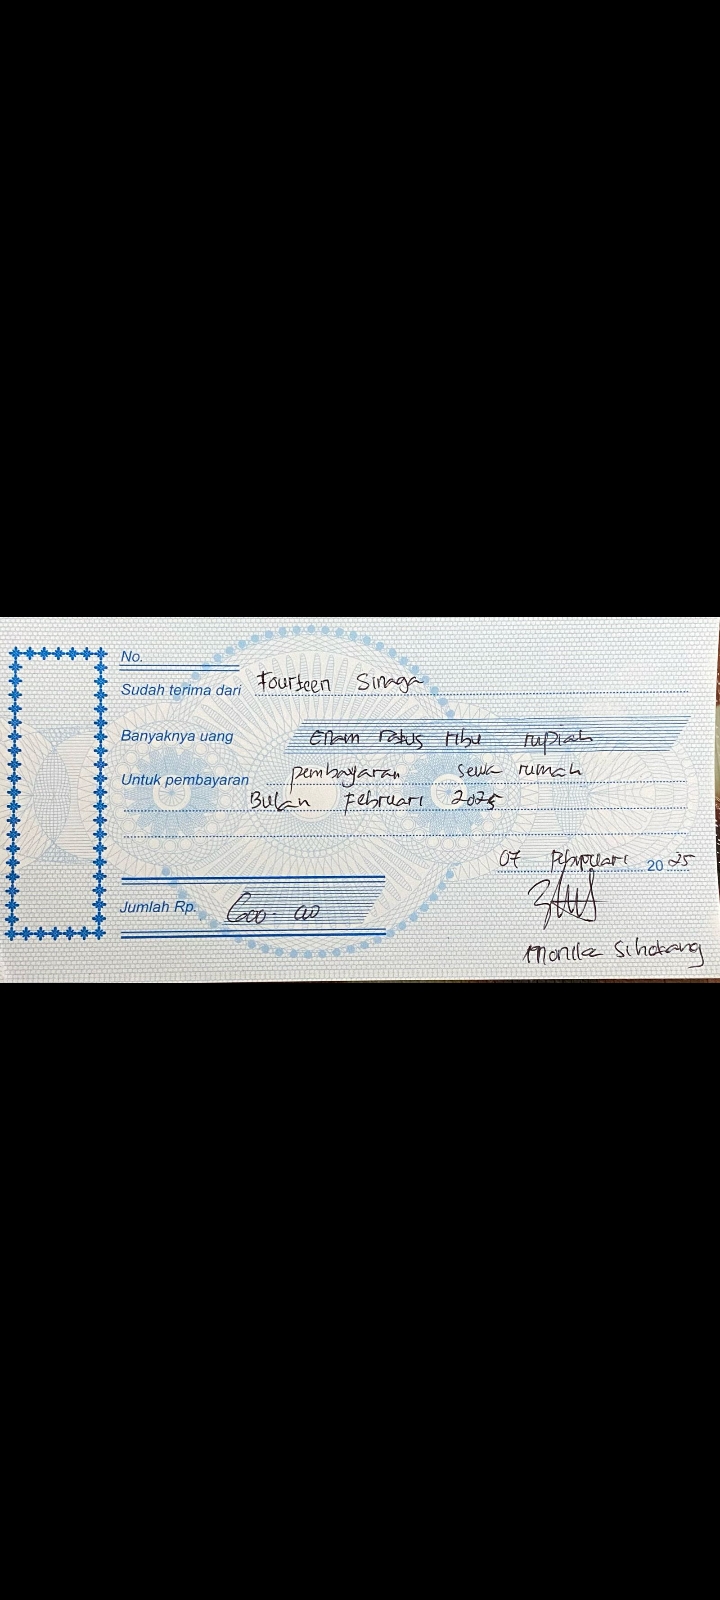 No.
Sudah terima dari Fourteen Sinaga
Banyaknya uang Enam ratus ribu rupiah
Untuk pembayaran pembayaran sewa rumah
Bulan Februari 2025
07 Februari 2025
Jumlah Rp.
Monika Sihotang